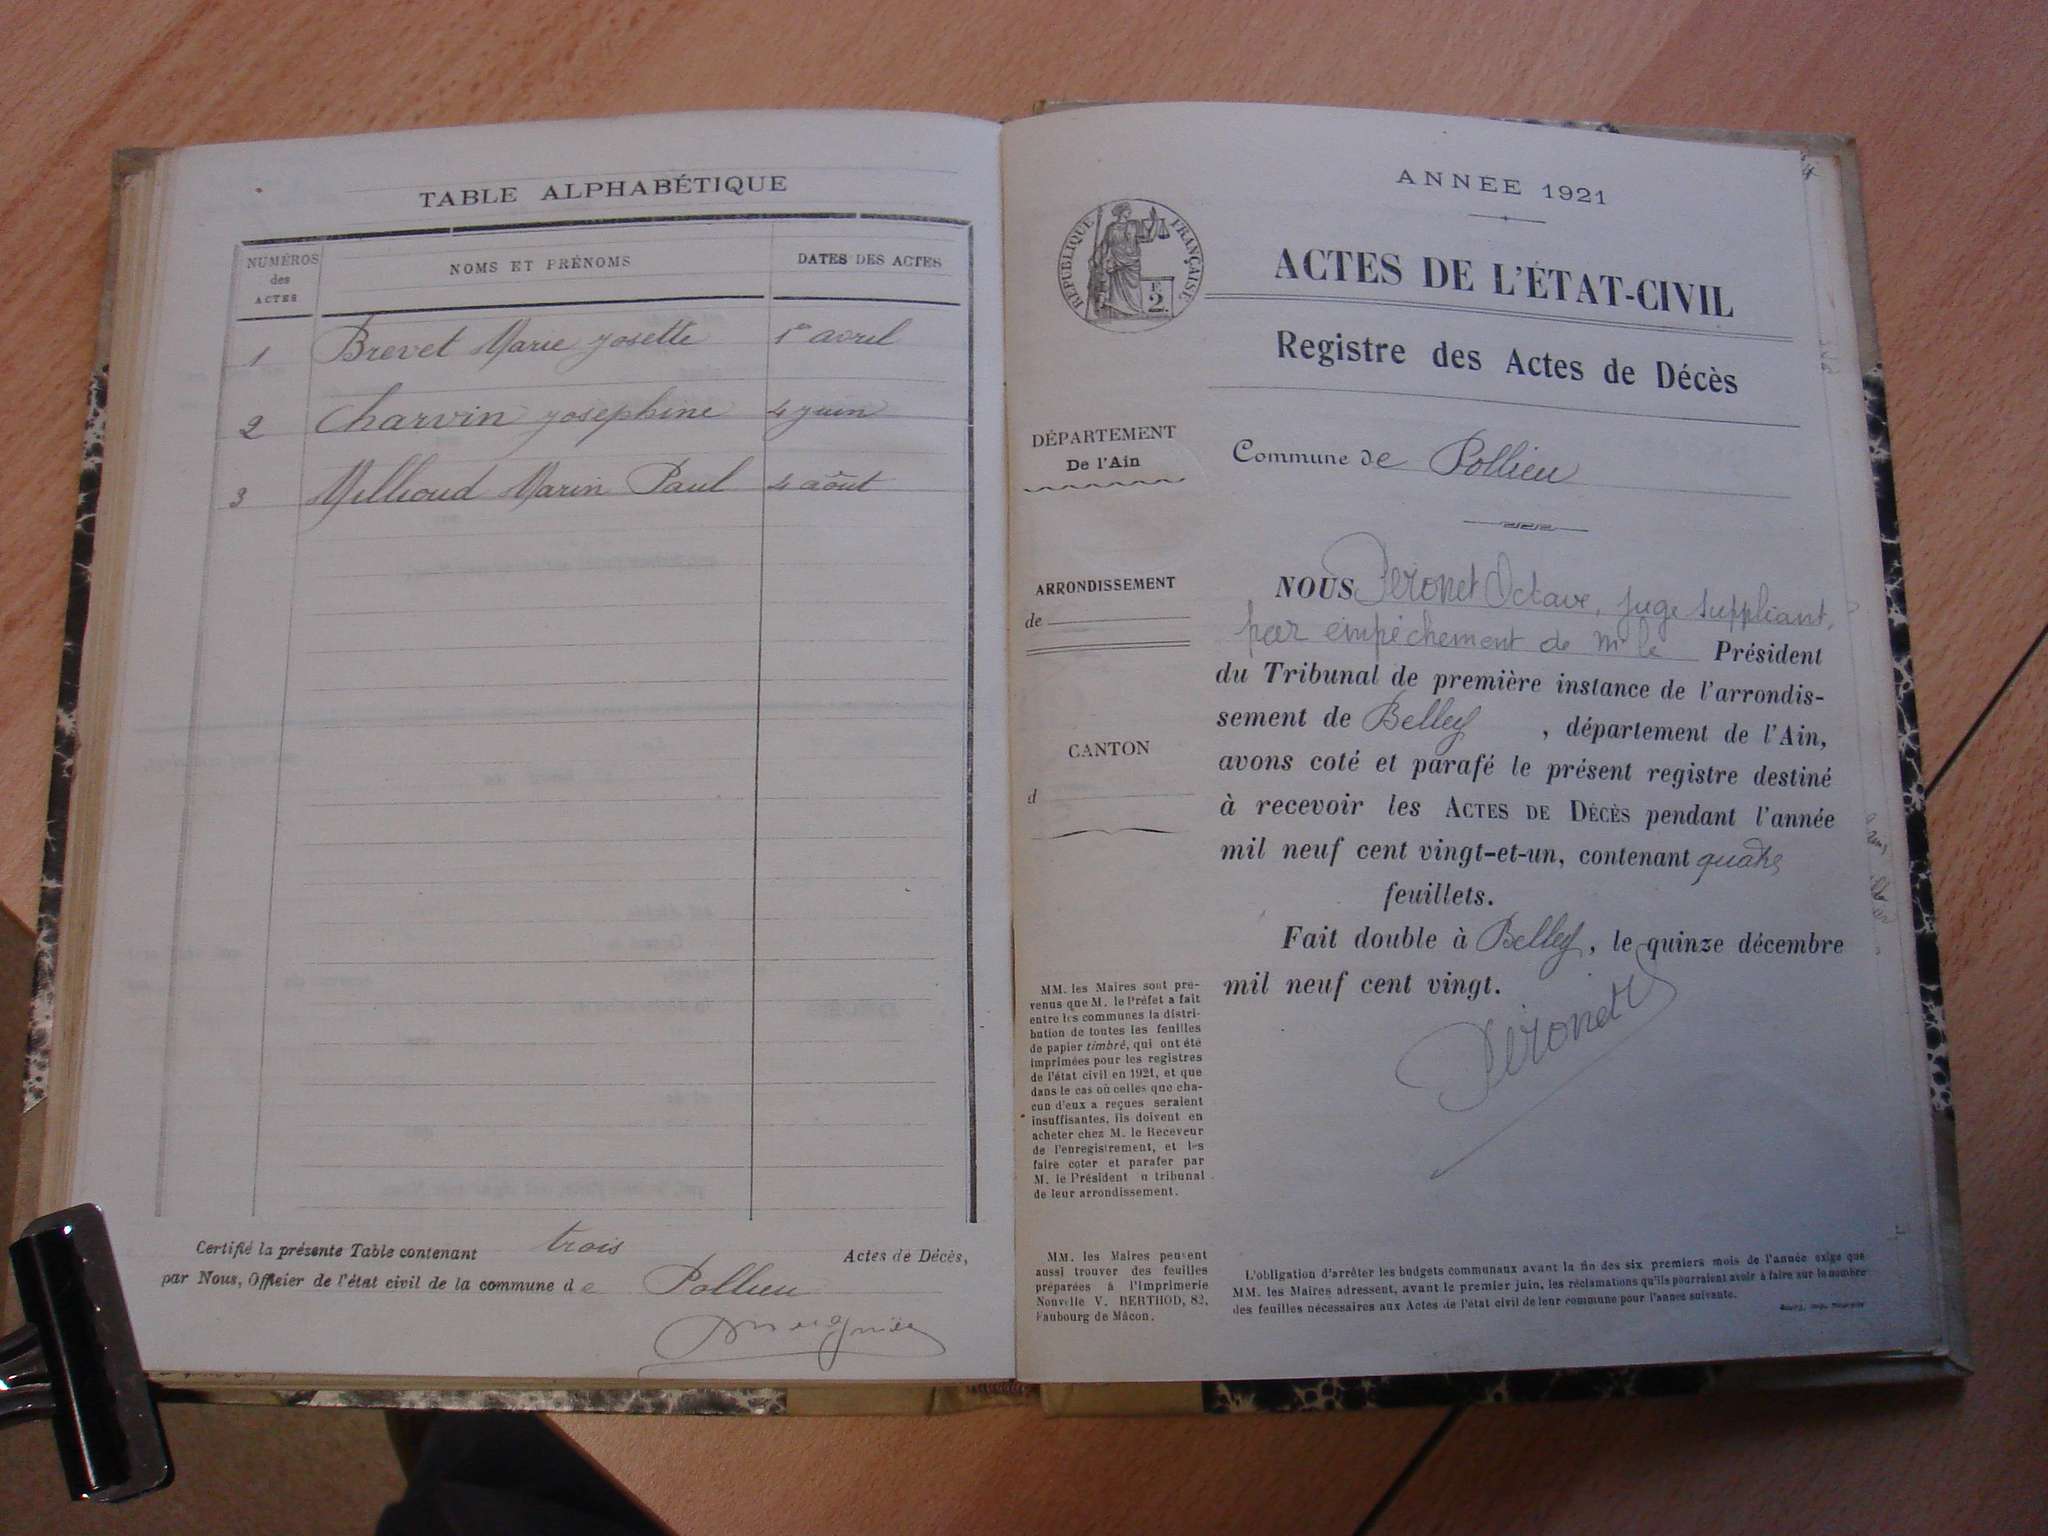 TABLE ALPHABÉTIQUE
NUMÉROS des ACTES
NOMS ET PRÉNOMS
DATES DES ACTES
1 Brevet Marie Josette 1er avril
2 Charvin Josephine 4 juin
3 Millioud Marin Paul 4 août
Certifié la présente Table contenant trois Actes de Décès,
par Nous, Officier de l'état civil de la commune de Pollieu
ANNÉE 1921
RÉPUBLIQUE FRANÇAISE
F.
2.
ACTES DE L'ÉTAT-CIVIL
Registre des Actes de Décès
DÉPARTEMENT
De l'Ain
Commune de Pollieu
ARRONDISSEMENT
de
CANTON
d
NOUS Peronet Octave, juge suppléant,
par empêchement de Mr le Président
du Tribunal de première instance de l'arrondis-
sement de Belley, département de l'Ain,
avons coté et parafé le présent registre destiné
à recevoir les ACTES DE DÉCÈS pendant l'année
mil neuf cent vingt-et-un, contenant quatre
feuillets.
Fait double à Belley, le quinze décembre
mil neuf cent vingt.
Peronet
MM. les Maires sont pré-
venus que M. le Préfet a fait
entre les communes la distri-
bution de toutes les feuilles
de papier timbré, qui ont été
imprimées pour les registres
de l'état civil en 1921, et que
dans le cas où celles que cha-
cun d'eux a reçues seraient
insuffisantes, ils doivent en
acheter chez M. le Receveur
de l'enregistrement, et les
faire coter et parafer par
M. le Président u tribunal
de leur arrondissement.
MM. les Maires peuvent
aussi trouver des feuilles
préparées à l'Imprimerie
Nouvelle V. BERTHOD, 82,
Faubourg de Mâcon.
L'obligation d'arrêter les budgets communaux avant la fin des six premiers mois de l'année exige que
MM. les Maires adressent, avant le premier juin, les réclamations qu'ils pourraient avoir à faire sur le nombre
des feuilles nécessaires aux Actes de l'état civil de leur commune pour l'année suivante.